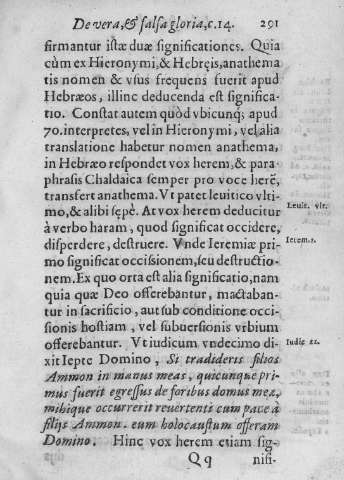 De vera, & falsa gloria, c. 14. 291
firmantur istæ duæ significationes. Quia
cùm ex Hieronymi, & Hebręis, anathema
tis nomen & vsus frequens fuerit apud
Hebræos, illinc deducenda est significa-
tio. Constat autem quòd vbicunq; apud
70. interpretes, vel in Hieronymi, vel alia
translatione habetur nomen anathema,
in Hebræo respondet vox herem, & para
phrasis Chaldaica semper pro voce herē,
transfert anathema. Vt patet leuitico vlti-
mo, & alibi sępè. At vox herem deducitur
à verbo haram, quod significat occidere,
disperdere, destruere. Vnde Ieremiæ pri-
mo significat occisionem, seu destructio-
nem. Ex quo orta est alia significatio, nam
quia quæ Deo offerebantur, mactaban-
tur in sacrificio, aut sub conditione occi-
sionis hostiam, vel subuersionis vrbium
offerebantur. Vt iudicum vndecimo di-
xit Iepte Domino, Si tradideris filios
Ammon in manus meas, quicunque pri-
mus fuerit egressus de foribus domus meæ,
mihique occurrerit reuertenti cum pace à
filijs Ammon. eum holocaustum offeram
Domino. Hinc vox herem etiam sig-
Qq nisi-
Leuit. vlt.
Ierem. 1.
Iudic 11.